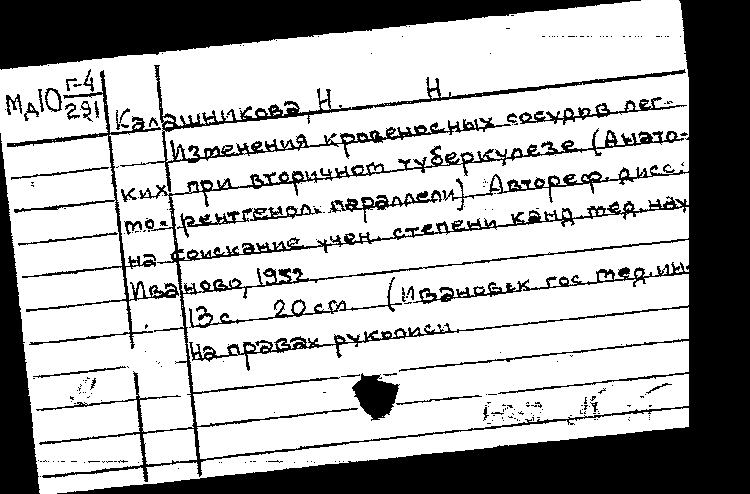 Мд10 Г-4/291
Калашникова, Н. Н.
Изменения кровеносных сосудов лег-
ких при вторичном туберкулезе (Анато-
мо-рентгенол. параллели). Автореф. дисс.
на соискание учен. степени канд. мед. нау
Иваново, 1952.
13 с. 20 см. (Ивановск. гос. мед. ин-
На правах рукописи.